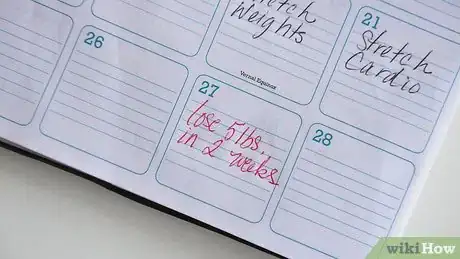 Weights
Vernal Equinox
21
Stretch
Cardio
26
27
lose 5 lbs.
in 2 weeks
28
wikiHow